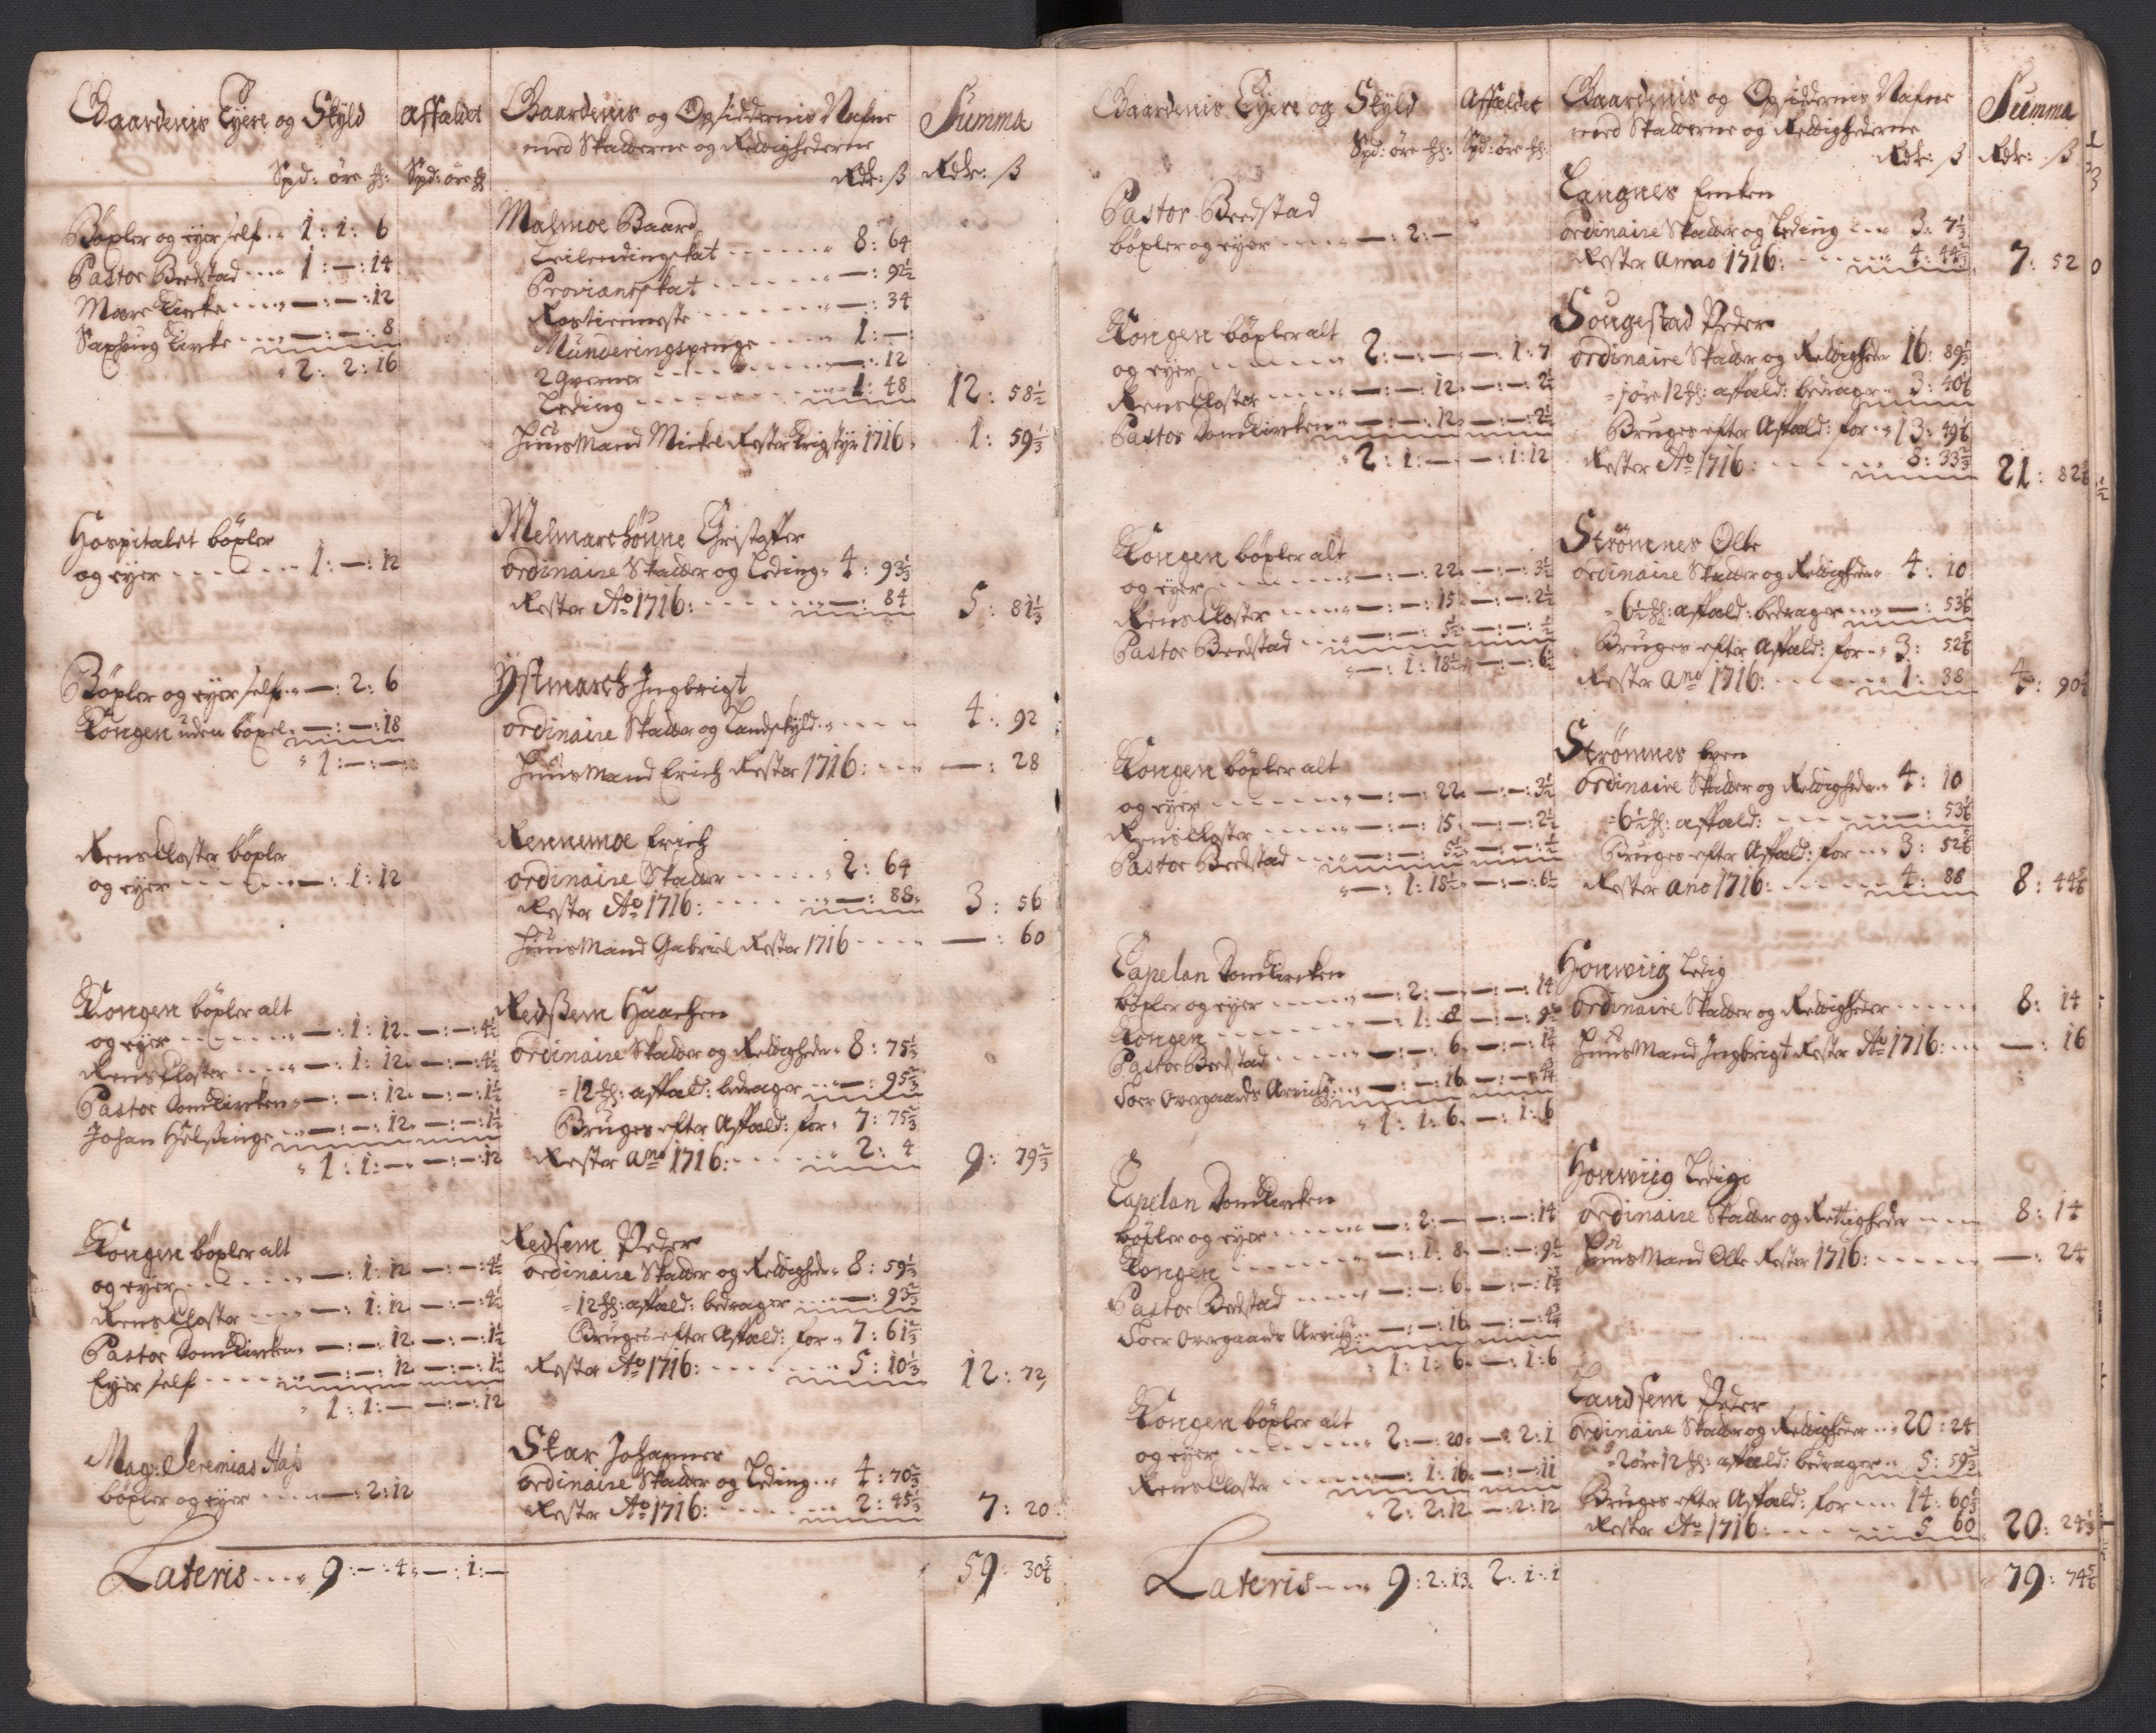 Gaardenis Eyere og Skyld
affaldet
Gaardenis og Opsiddernis Nafne
med Skatterne og Rettighederne
Summa
Spd: öre
Spd: öre
Rdr: ß
Rdr: ß
Böxler og eyer self 1: 1: 6
Pastor Bredstad 1: —: 14
Mære Kirke —: —: 12
Saxhaug Kirke —: —: 8
2: 2: 16
Malmoe Baard
Leilendingskat 8: 64
Proviantskat —: 92½
Rostieneste —: 34
Munderingspenge 1: —:
2 Qverner —: 12
Leding 1: 48
12: 58½
Huus Mand Mickel Rester Krigstyr 1716
1: 59⅓
Hospitalet böxler
og eyer 1: —: 12
Melmarchöune Christoffer
ordinaire Skatter og Leding 4: 93⅓
Rester Ao 1716: —: 84
5: 81⅓
Böxler og eyer self —: 2: 6
Kongen uden böxel —: —: 18
1: —: —
Ÿstmarch Ingbrigt
ordinaire Skatter og Landskyld
4: 92
Huus Mand Erich Rester 1716:
—: 28
Rens Closter böxler
og eyer —: 1: 12
Rennemoe Erich
ordinaire Skatter 2: 64
Rester Ao 1716: —: 88
3: 56
Huus Mand Gabriel Rester 1716
—: 60
Kongen böxler alt
og eyer —: 1: 12 —: —: 4½
Rens Closter —: 1: 12 —: —: 4½
Pastor Domkircken —: —: 12 —: —: 1½
Johan Helsinge —: —: 12 —: —: 1½
1: 1: — —: —: 12
Redßem Haachen
ordinaire Skatter og Rettigheder 8: 75⅓
12 affald: bedrager —: 95⅔
Bruges efter Affald: for 7: 75⅔
Rester ano 1716: 2: 4
9: 79⅔
Kongen böxler alt
og eyer —: 1: 12 —: —: 4½
Rens Closter —: 1: 12 —: —: 4½
Pastor Domkircken —: —: 12 —: —: 1½
Eyer self —: —: 12 —: —: 1½
1: 1: — —: —: 12
Redsem Peder
ordinaire Skatter og Rettigheder 8: 59⅓
12 affald: bedrager —: 93⅔
Bruges efter Affald: for 7: 61⅔
Rester Ao 1716: 5: 10⅓
12: 72
Mag: Jeremias Hass
böxler og eyer —: 2: 12
Skar Johannes
ordinaire Skatter og Leding 4: 70⅔
Rester Ao 1716: 2: 45⅓
7: 20
Lateris 9: —: 4 —: 1: —
59: 30⅚
Gaardenis Eyere og Skyld
Affaldet
Gaardenis og Opsiddernis Nafne
med Skatterne og Rettighederne
Summa
Spd: öre
Spd: öre
Rdr: ß
Rdr: ß
Pastor Bredstad
böxler og eyer —: 2: —
Langnes Encken
ordinaire Skatter og Leding 3: 7⅓
Rester Anno 1716: 4: 44⅔
7: 52
Kongen böxler alt
og eyer 2: —: — —: 1: 7
Rens Closter —: —: 12 —: —: 2½
Pastor Domkircken —: —: 12 —: —: 2½
2: 1: — —: 1: 12
Sougestad Peder
ordinaire Skatter og Rettigheder 16: 89⅓
1 öre 12 affald: bedrager 3: 40⅙
Bruges efter Affald: for 13: 49⅙
Rester Ao 1716: 8: 33⅔
21: 82⅚
Kongen böxler alt
og eyer —: —: 22 —: —: 3½
Rens Closter —: —: 15 —: —: 2½
Pastor Bredstad —: —: 5½ —: —: ½
—: 1: 18½ —: —: 6½
Strömnes Olle
ordinaire Skatter og Rettigheder 4: 10
6½ affald: bedrager —: 53⅙
Bruges efter Affald: for 3: 52⅚
Rester ano 1716: 1: 38
4: 90⅚
Kongen böxler alt
og eyer —: —: 22 —: —: 3½
Rens Closter —: —: 15 —: —: 2½
Pastor Bredstad —: —: 5½ —: —: ½
—: 1: 18½ —: —: 6½
Strömnes Even
ordinaire Skatter og Rettigheder 4: 10
6½ affald: —: 53⅙
Bruges efter Affald: for 3: 52⅚
Rester ano 1716: 4: 88
8: 44⅚
Capelan Domkircken
böxler og eyer —: 2: — —: —: 14
Kongen —: 1: 8 —: —: 9½
Pastor Bredstad —: —: 6 —: —: 1¾
Soer Overgaards Arving —: —: 16 —: —: 4¾
1: 1: 6 —: 1: 6
Honwiig Ledig
ordinaire Skatter og Rettigheder
8: 14
Huus Mand Ingbrigt Rester Ao 1716:
—: 16
Capelan Domkircken
böxler og eyer —: 2: — —: —: 14
Kongen —: 1: 8 —: —: 9½
Pastor Bredstad —: —: 6 —: —: 1¾
Soer Overgaards Arving —: —: 16 —: —: 4¾
1: 1: 6 —: 1: 6
Honwiig Ledige
ordinaire Skatter og Rettigheder
8: 14
Huus Mand Olle Rester 1716:
—: 24
Kongen böxler alt
og eyer 2: —: 20 —: 2: 1
Rens Closter —: 1: 16 —: —: 11
2: 2: 12 —: 2: 12
Landsem Peder
ordinaire Skatter og Rettigheder 20: 24
2 öre 12 affald: bedrager 5: 59⅔
Bruges efter Affald: for 14: 60⅓
Rester Ao 1716: 5: 60
20: 24⅓
Lateris 9: 2: 13 2: 1: 1
79: 74⅚